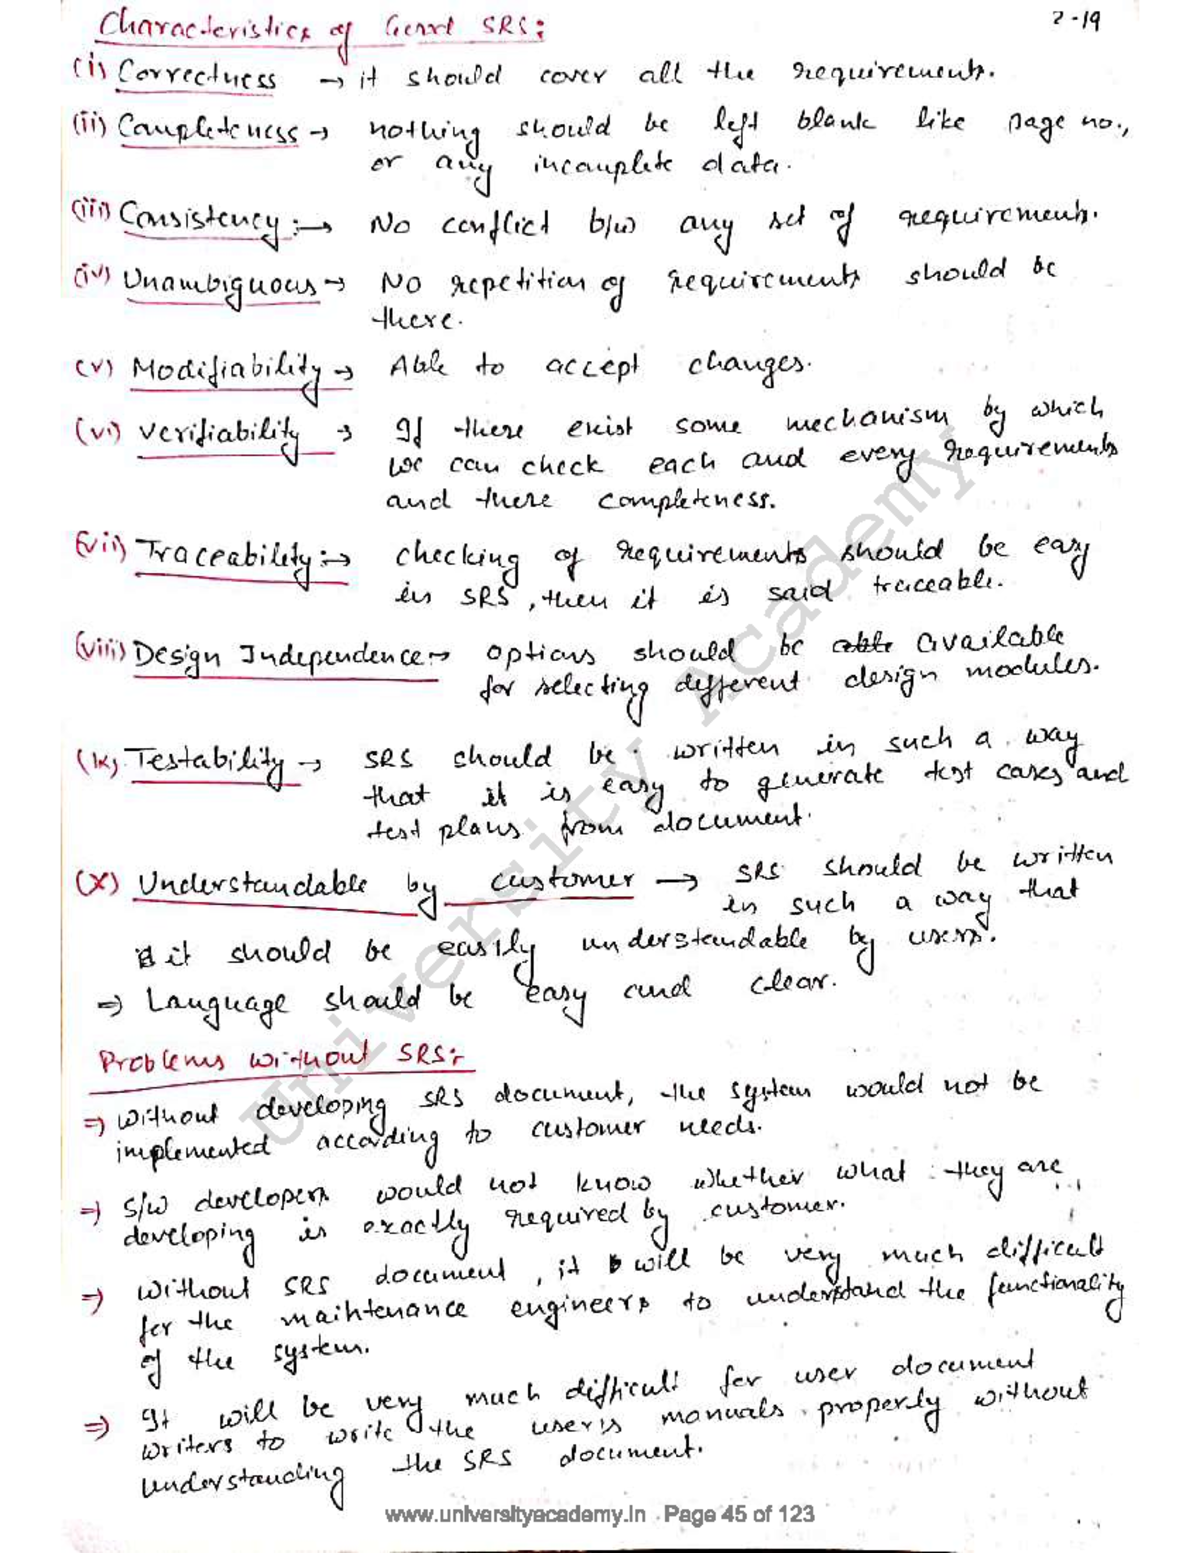 Characteristics of Good SRS:
2-19
(i) Correctness → it should cover all the requirements.
(ii) Completeness → nothing should be left blank like page no.,
or any incomplete data.
(iii) Consistency :→ No conflict b/w any set of requirements.
(iv) Unambiguous → No repetition of requirements should be
there.
(v) Modifiability → Able to accept changes.
(vi) Verifiability → If there exist some mechanism by which
we can check each and every requirements
and there completeness.
(vii) Traceability :→ checking of requirements should be easy
in SRS, then it is said traceable.
(viii) Design Independence → options should be able available
for selecting different design modules.
(ix) Testability → SRS should be written in such a way
that it is easy to generate test cases and
test plans from document.
(x) Understandable by customer → SRS should be written
in such a way that
it should be easily understandable by users.
⇒ Language should be easy and clear.
Problems without SRS:
⇒ without developing SRS document, the system would not be
implemented according to customer needs.
⇒ S/w developers would not know whether what they are
developing is exactly required by customer.
⇒ without SRS document, it will be very much difficult
for the maintenance engineers to understand the functionality
of the system.
⇒ It will be very much difficult for user document
writers to write the user's manuals properly without
understanding the SRS document.
University Academy
www.universityacademy.in Page 45 of 123